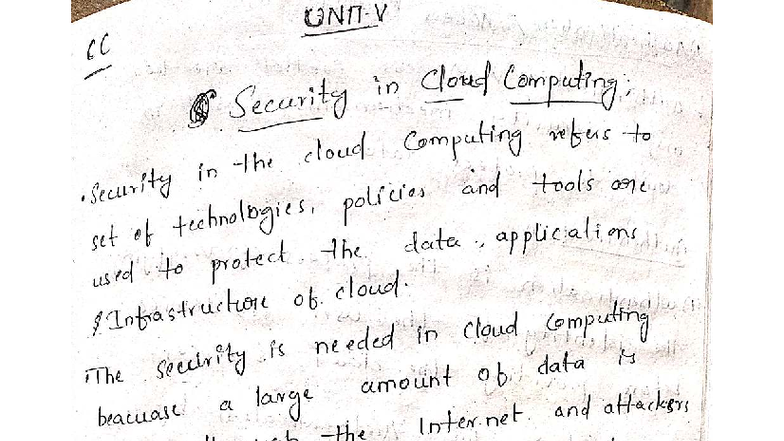 UNIT-V
CC
Security in Cloud Computing:
•Security in the cloud Computing refers to
set of technologies, policies and tools are
used to protect the data, applications
& Infrastructure of cloud.
•The security is needed in cloud computing
beacuase a large amount of data is
the Internet and attackers